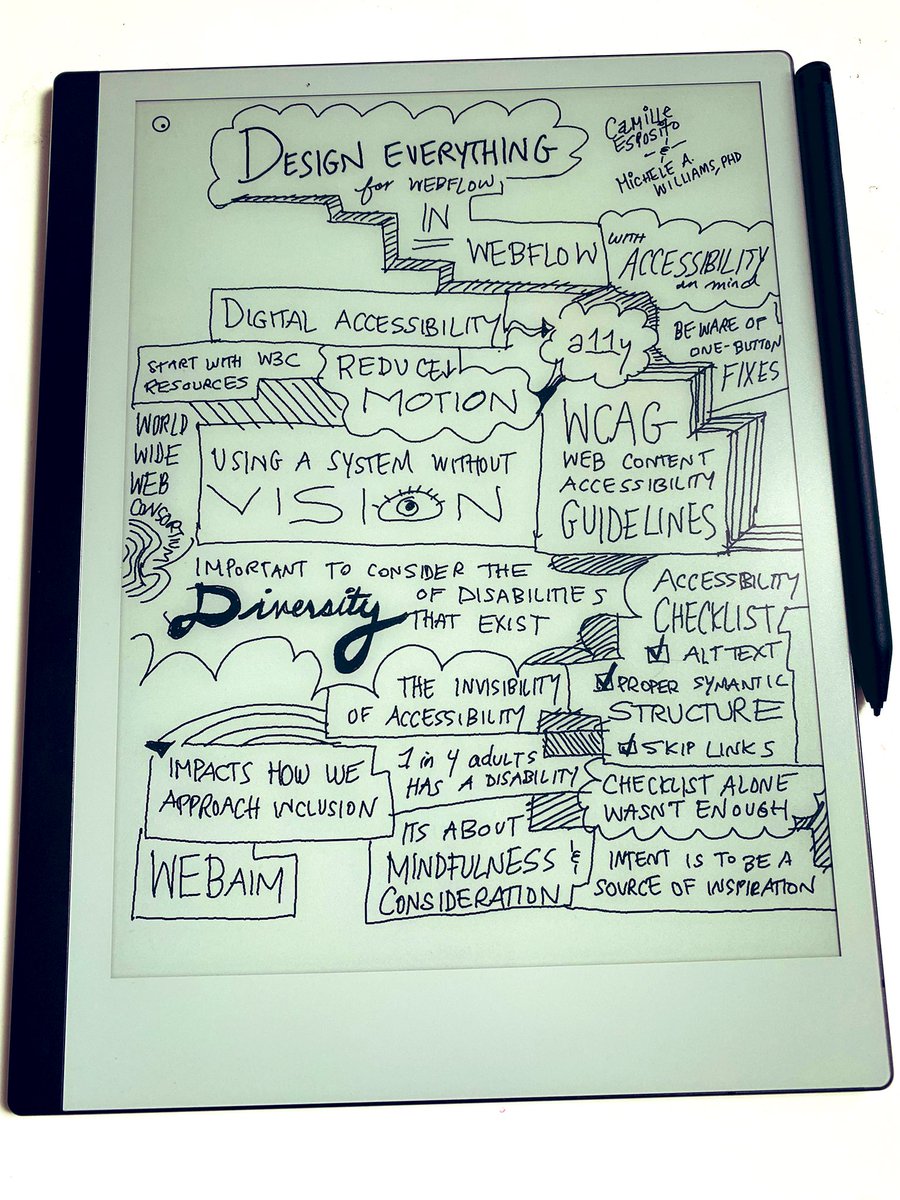 DESIGN EVERYTHING
for WEBFLOW
IN
WEBFLOW
CAMILLE
ESPOSITO
&
MICHELE A.
WILLIAMS, PHD
WITH
ACCESSIBILITY
in mind
DIGITAL ACCESSIBILITY
a11y
BEWARE OF
ONE-BUTTON
FIXES
START WITH W3C
RESOURCES
REDUCE
MOTION
WORLD
WIDE
WEB
CONSORTIUM
USING A SYSTEM WITHOUT
VISION
WCAG
WEB CONTENT
ACCESSIBILITY
GUIDELINES
IMPORTANT TO CONSIDER THE
Diversity
OF DISABILITIES
THAT EXIST
ACCESSIBILITY
CHECKLIST
ALT TEXT
PROPER SYMANTIC
STRUCTURE
SKIP LINKS
THE INVISIBILITY
OF ACCESSIBILITY
IMPACTS HOW WE
APPROACH INCLUSION
1 in 4 adults
HAS A DISABILITY
CHECKLIST ALONE
WASN'T ENOUGH
WEBAIM
ITS ABOUT
MINDFULNESS &
CONSIDERATION
INTENT IS TO BE A
SOURCE OF INSPIRATION